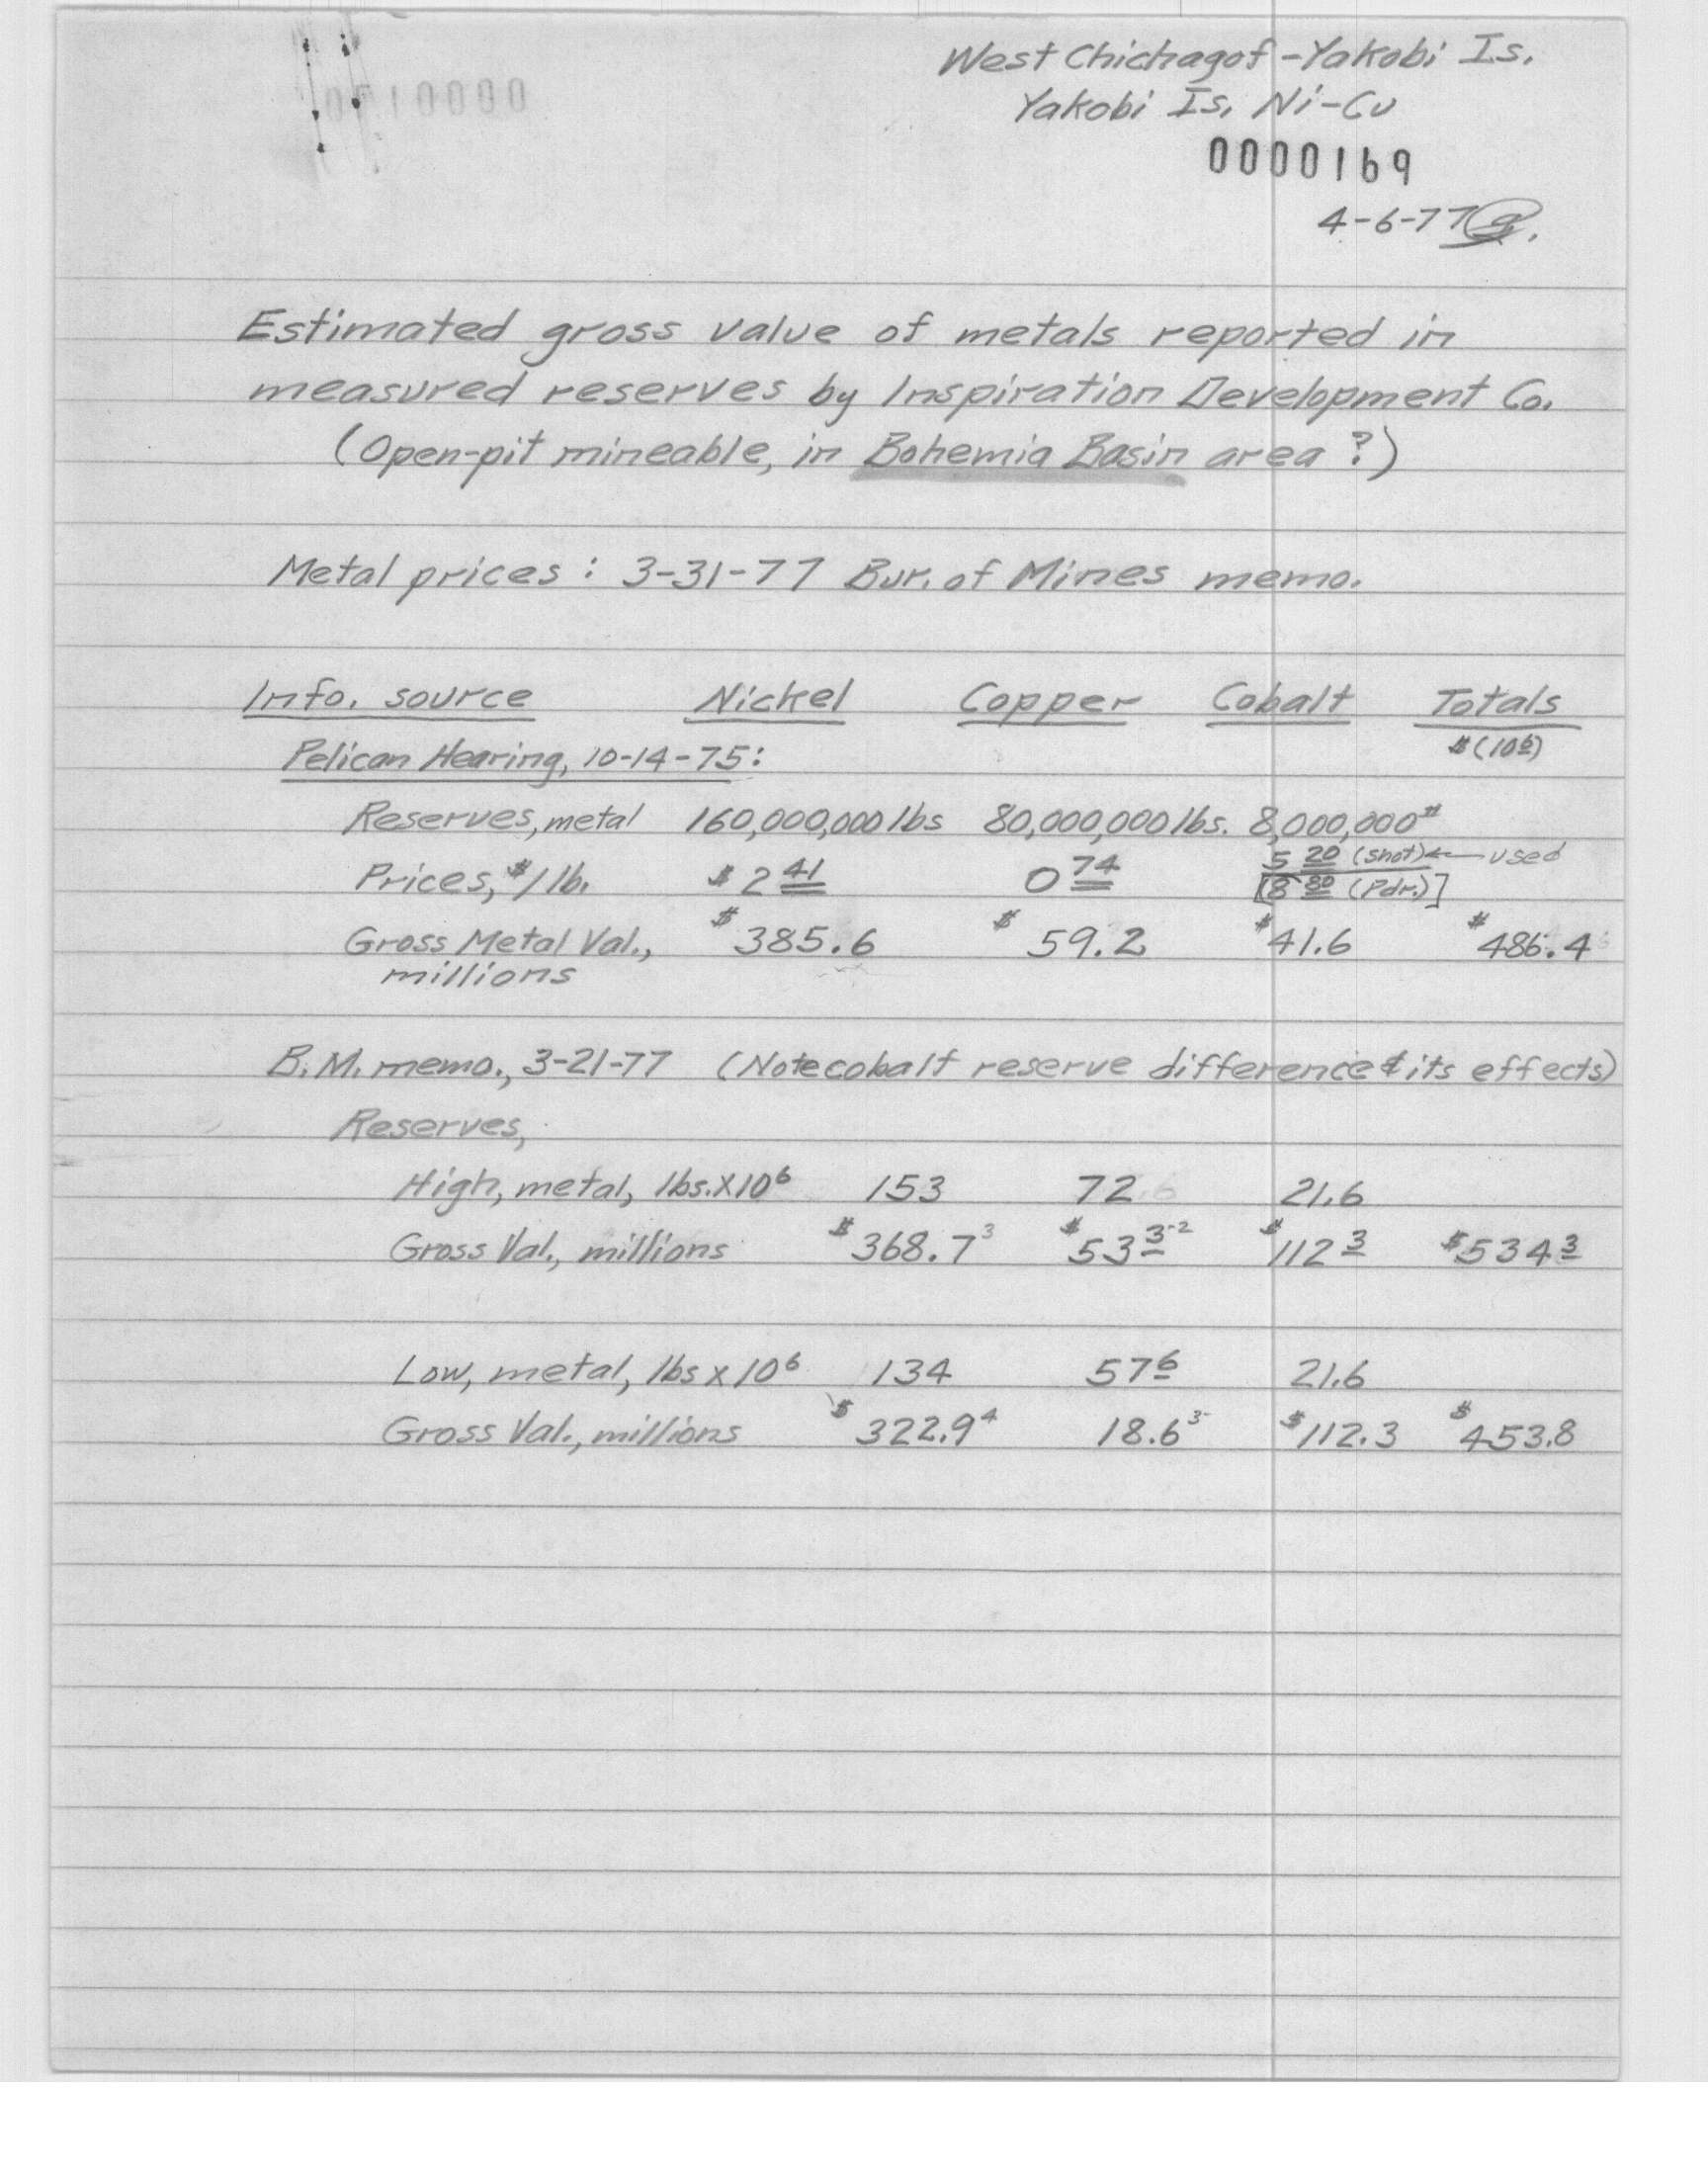 West Chichagof-Yakobi Is.
Yakobi Is. Ni-Cu
0000169
4-6-77
Estimated gross value of metals reported in
measured reserves by Inspiration Development Co.
(Open-pit mineable, in Bohemia Basin area ?)
Metal prices: 3-31-77 Bur. of Mines memo.
Info. source Nickel Copper Cobalt Totals
$(10⁶)
Pelican Hearing, 10-14-75:
Reserves, metal 160,000,000 lbs 80,000,000 lbs. 8,000,000#
Prices, $/lb. $2 41 0 74 5 20 (shot) ← used
[8 80 (Pdr.)]
Gross Metal Val., $385.6 $59.2 $41.6 $486.4
millions
B.M. memo., 3-21-77 (Note cobalt reserve difference & its effects)
Reserves,
High, metal, lbs.x10⁶ 153 72 21.6
Gross Val., millions $368.7³ $53 3-2 $112 3 $534 3
Low, metal, lbs x 10⁶ 134 57 6 21.6
Gross Val., millions $322.9⁴ 18.6³⁻ $112.3 $453.8